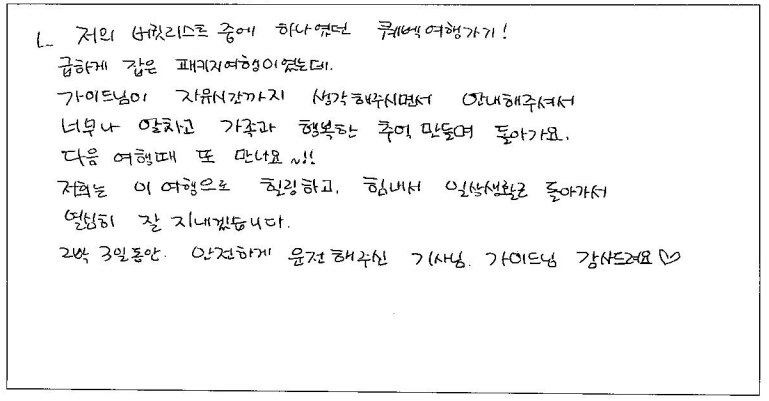 1. 저의 버킷리스트 중에 하나였던 퀘벡여행가기!
급하게 잡은 패키지여행이였는데.
가이드님이 자유시간까지 생각해주시면서 안내해주셔서
너무나 알차고 가족과 행복한 추억 만들며 돌아가요.
다음 여행때 또 만나요~!!
저희는 이 여행으로 힐링하고, 힘내서 일상생활로 돌아가서
열심히 잘 지내겠습니다.
2박 3일동안. 안전하게 운전해주신 기사님. 가이드님 감사드려요♡